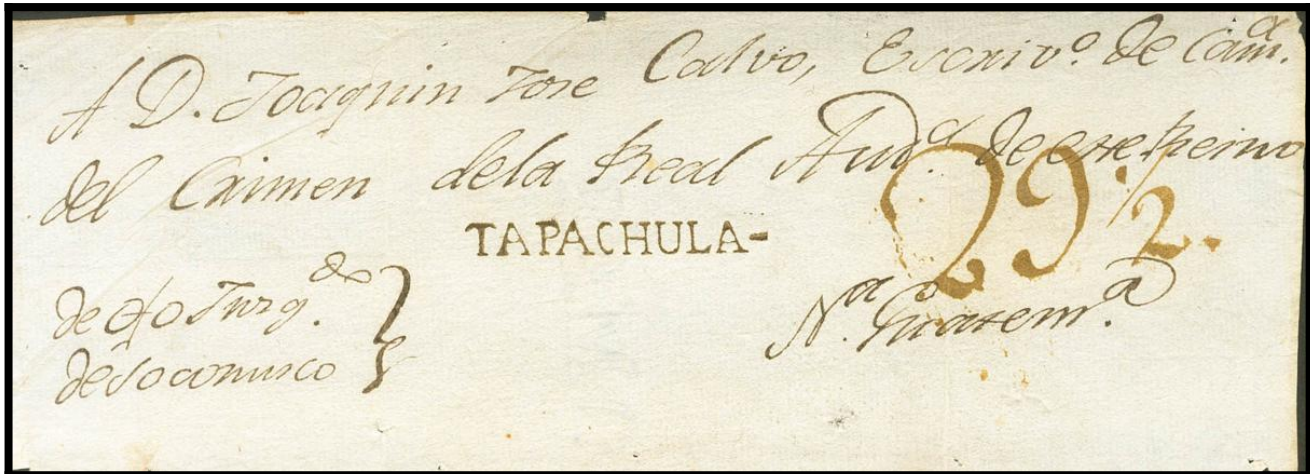 A D. Joaquin Jose Calvo, Escriv.º de Cam.ª
del Crimen de la Real Aud.ª de este Reino
TAPACHULA-
29½.
de ofo Juzg.do
de Soconusco
N.ª Guatem.ª